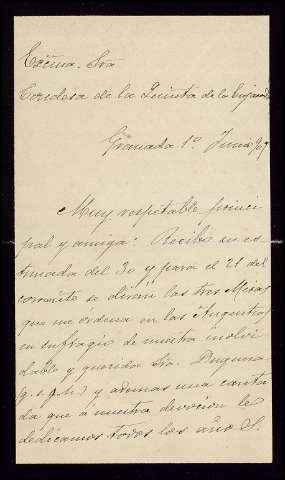 Exma. Sra
Condesa de la Quinta de la Enjarada
Granada 1º Junio 907
Muy respetable princi
pal y amiga: Recibo su es-
timada del 30 y para el 21 del
corriente se dirán las tres Misas
que me ordena en las Angustias
en sufragio de nuestra inolvi
dable y querida Sra. Duquesa
(q. s. g. h.) y ademas una canta
da que á nuestra devocion le
dedicamos todos los años S.